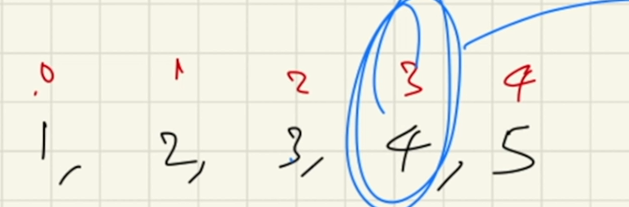 0 1 2 3 4
1, 2, 3, 4, 5